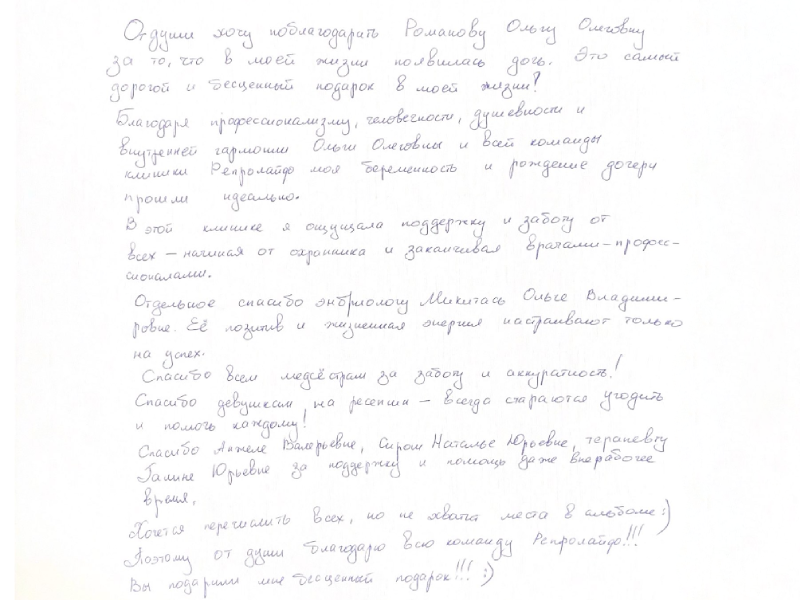 От души хочу поблагодарить Романову Ольгу Олеговну
за то, что в моей жизни появилась дочь. Это самый
дорогой и бесценный подарок в моей жизни!
Благодаря профессионализму, человечности, душевности и
внутренней гармонии Ольги Олеговны и всей команды
клиники Репролайф моя беременность и рождение дочери
прошли идеально.
В этой клинике я ощущала поддержку и заботу от
всех – начиная от охранника и заканчивая врачами-професс-
сионалами.
Отдельное спасибо эмбриологу Микитась Ольге Владими-
ровне. Её позитив и жизненная энергия настраивают только
на успех.
Спасибо всем медсёстрам за заботу и аккуратность!
Спасибо девушкам на ресепшн – всегда стараются угодить
и помочь каждому!
Спасибо Анжеле Валерьевне, Наталье Юрьевне, терапевту
Галине Юрьевне за поддержку и помощь даже внерабочее
время.
Хочется перечислить всех, но не хватит места в альбоме :)
Поэтому от души благодарю всю команду Репролайф!!!
Вы подарили мне бесценный подарок!!! :)